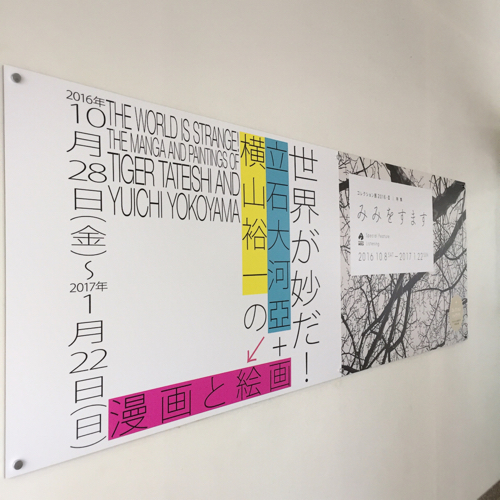 世界が妙だ!
立石大河亞+
横山裕一の
漫画と絵画
THE WORLD IS STRANGE!
THE MANGA AND PAINTINGS OF
TIGER TATEISHI AND
YUICHI YOKOYAMA
2016年
10月28日(金)~
2017年
1月22日(日)
みみをすます
2016 10.8 – 2017 1.22